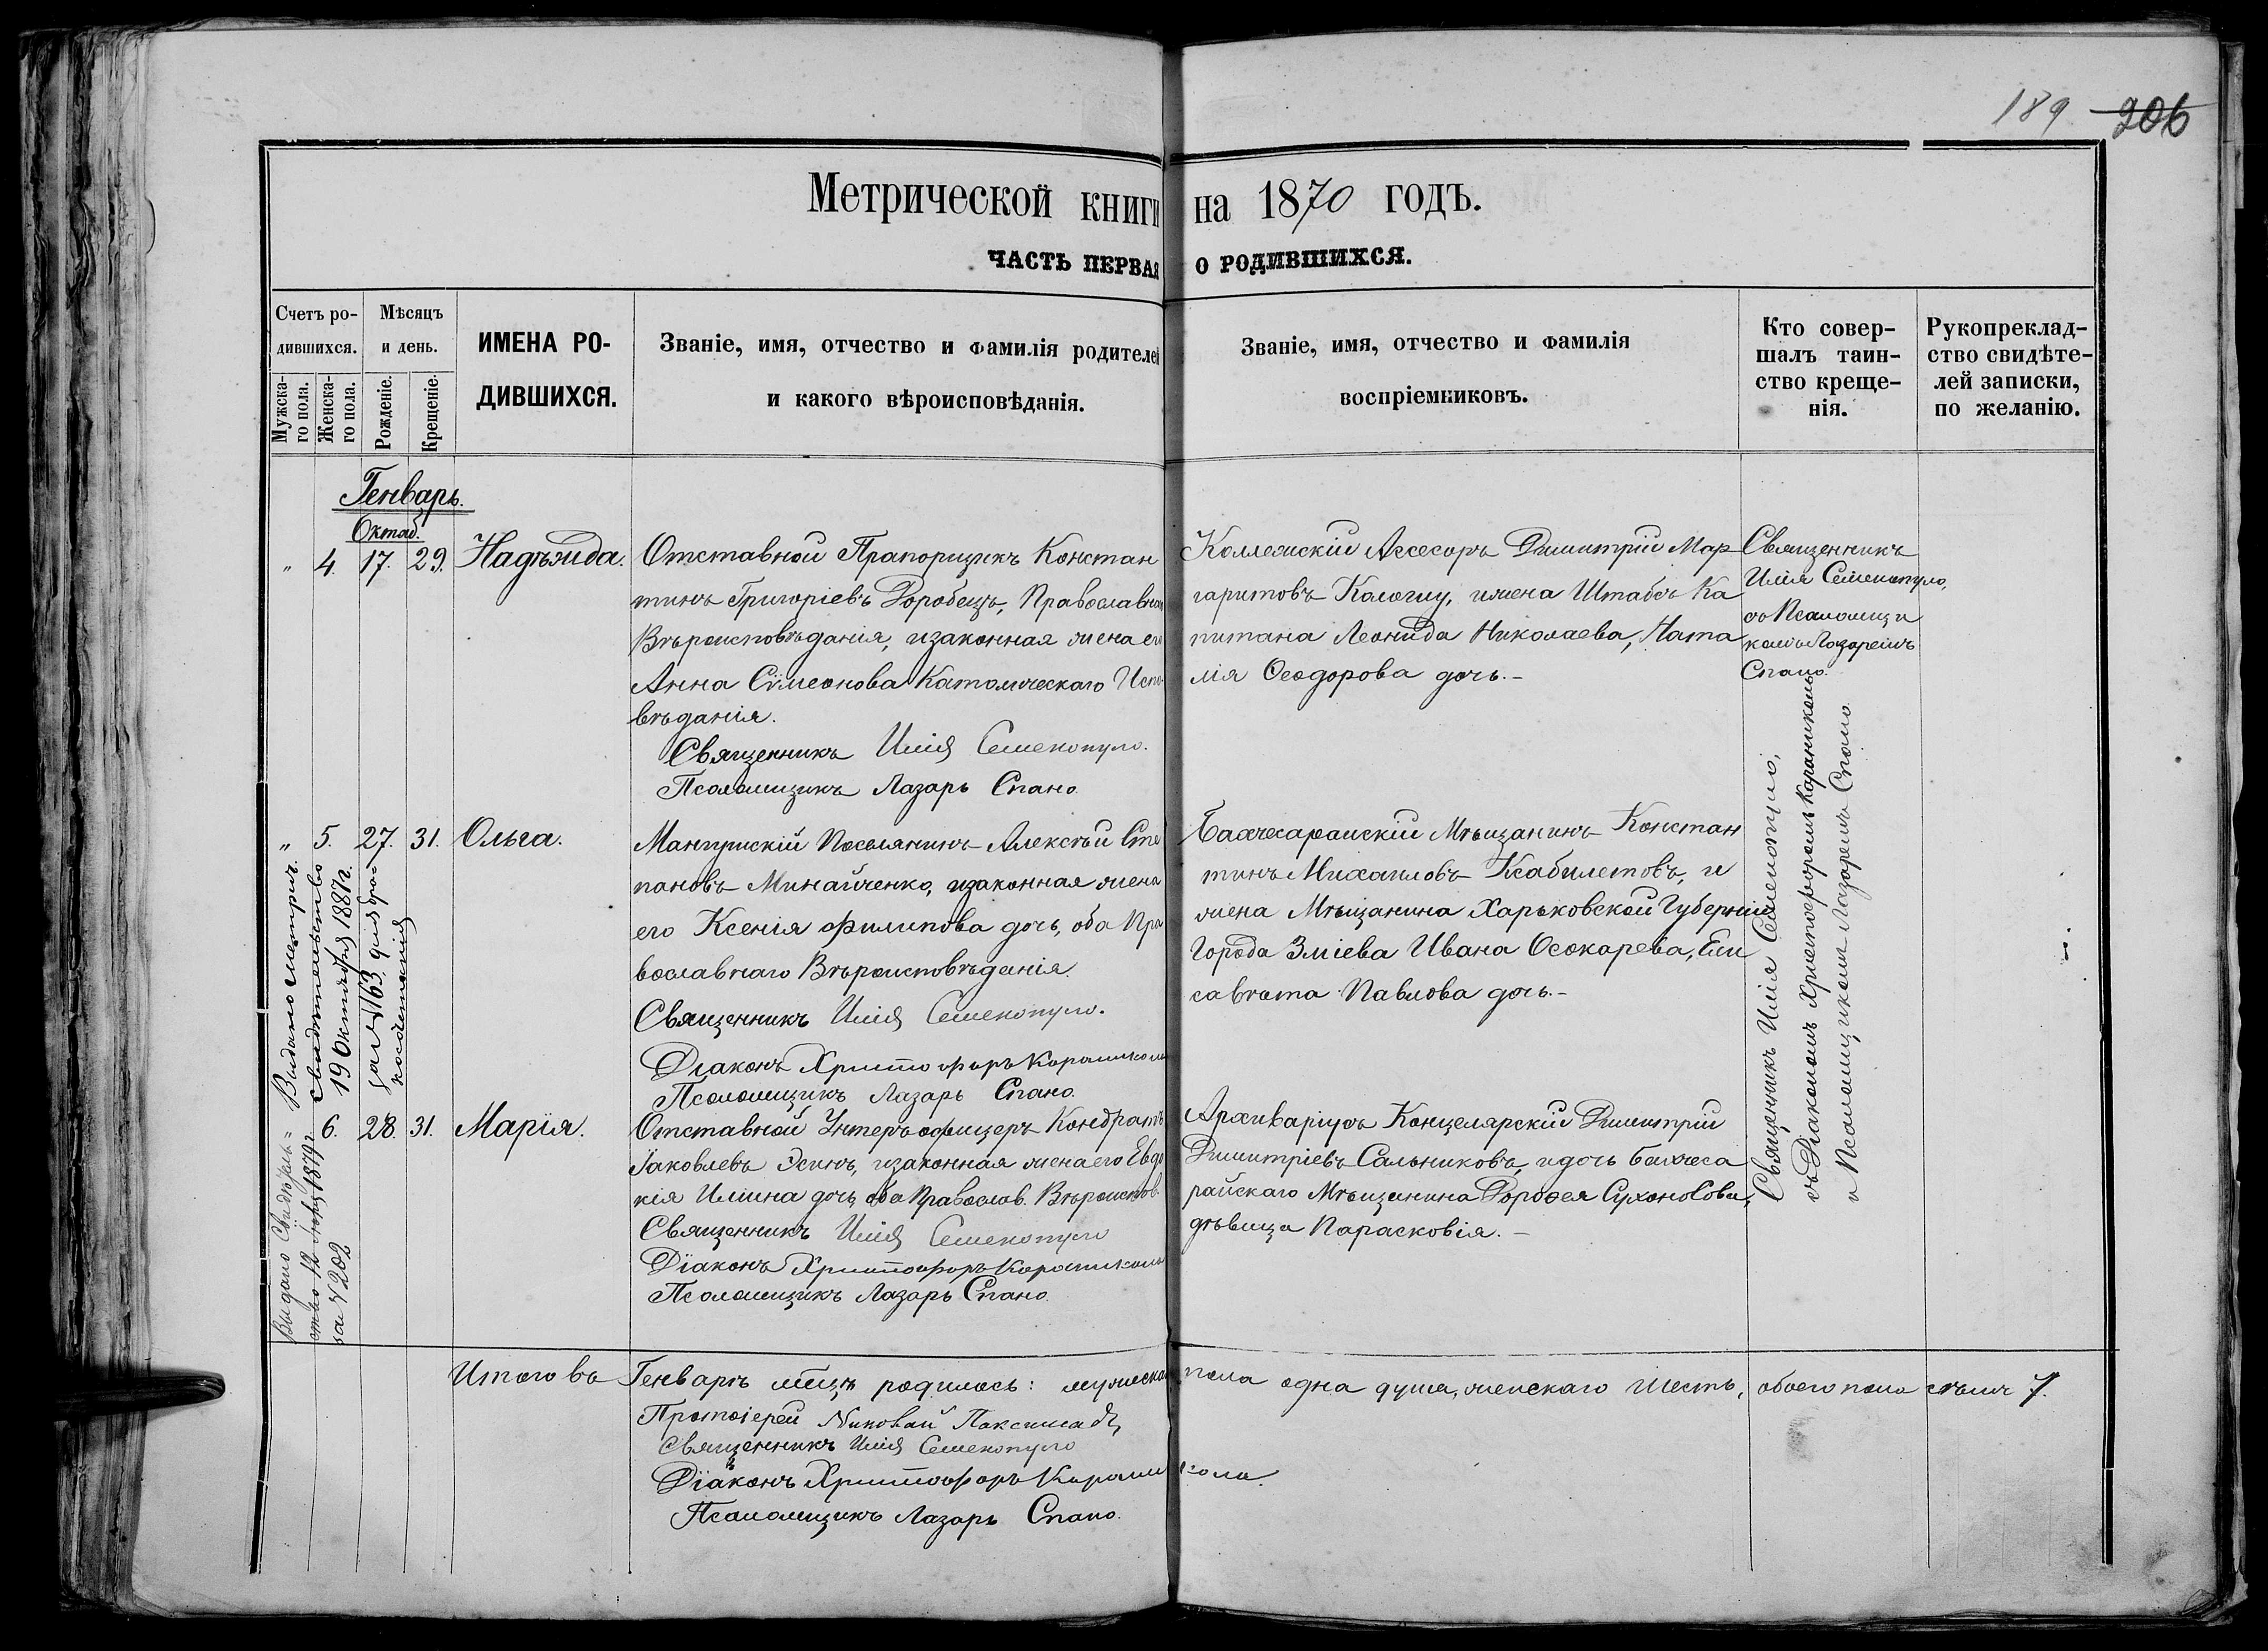 189 206
Метрической книги на 1870 годъ.
ЧАСТЬ ПЕРВАЯ О РОДИВШИХСЯ.
Счетъ ро-
дившихся.
Мужска-
го пола.
Женска-
го пола.
Мѣсяцъ
и день.
Рожденіе.
Крещеніе.
ИМЕНА РО-
ДИВШИХСЯ.
Званіе, имя, отчество и фамилія родителей
и какого вѣроисповѣданія.
Званіе, имя, отчество и фамилія
воспріемниковъ.
Кто совер-
шалъ таин-
ство креще-
нія.
Рукопреклад-
ство свидѣте-
лей записки,
по желанію.
Генварь.
Октяб.
" 4. 17. 29. Надѣжда.
Отставной Прапорщикъ Констан
тинъ Григоріевъ Горобецъ, Православнаго
Вѣроисповѣданія, изаконная жена его
Анна Сѵмеонова Католическаго Испо
вѣданія.
Священникъ Илія Семенопуло.
Псаломщикъ Лазарь Спано.
Коллежскій Ассесоръ Димитрій Мар
гаритовъ Калогиу, и жена Штабсъ Ка
питана Леонида Николаева, Ната
лія Ѳеодорова дочь.-
Священникъ
Илія Семенопуло,
съ Псаломщи
комъ Лазаремъ
Спано.
" 5. 27. 31. Ольга.
Мангушскій Поселянинъ Алексѣй Сте
пановъ Минайченко, изаконная жена
его Ксенія Филипова дочь, оба Пра
вославнаго Вѣроисповѣданія.
Священникъ Илія Семенопуло.
Діаконъ Христофоръ
Псаломщикъ Лазарь Спано.
Бахчесарайскій Мѣщанинъ Констан
тинъ Михаиловъ Кабилетовъ, и
жена Мѣщанина Харьковской Губерніи
Города Зміева Ивана Осокарева, Ели
савѣта Павлова дочь.-
Священникъ Илія Семенопуло,
съ Діакономъ Христофоромъ
и Псаломщикомъ Лазаремъ Спано.
Выдано метрич.
свидѣтельство
19 Октября 1887 г.
за № 163. для
6. 28. 31. Марія.
Отставной Унтеръ офицеръ Кондратъ
Іаковлевъ Эсинъ, изаконная жена его Евдо
кія Иліина дочь, оба Православ. Вѣроисповѣ.
Священникъ Илія Семенопуло
Діаконъ Христофоръ
Псаломщикъ Лазарь Спано.
Архиваріусъ Канцелярскій Димитрій
Димитріевъ Сальниковъ, и дочь Бахчеса
райскаго Мѣщанина Дорофея Сухоносова,
дѣвица Парасковія.-
Выдано Свидѣтель=
ство 12 1879 г.
за № 202
Итого въ Генварѣ мѣцѣ родилось: мужеска пола одна душа, женскаго шесть, обоего пола семь 7.
Протоіерей Николай Паксимади,
Священникъ Илія Семенопуло
Діаконъ Христофоръ
Псаломщикъ Лазарь Спано.